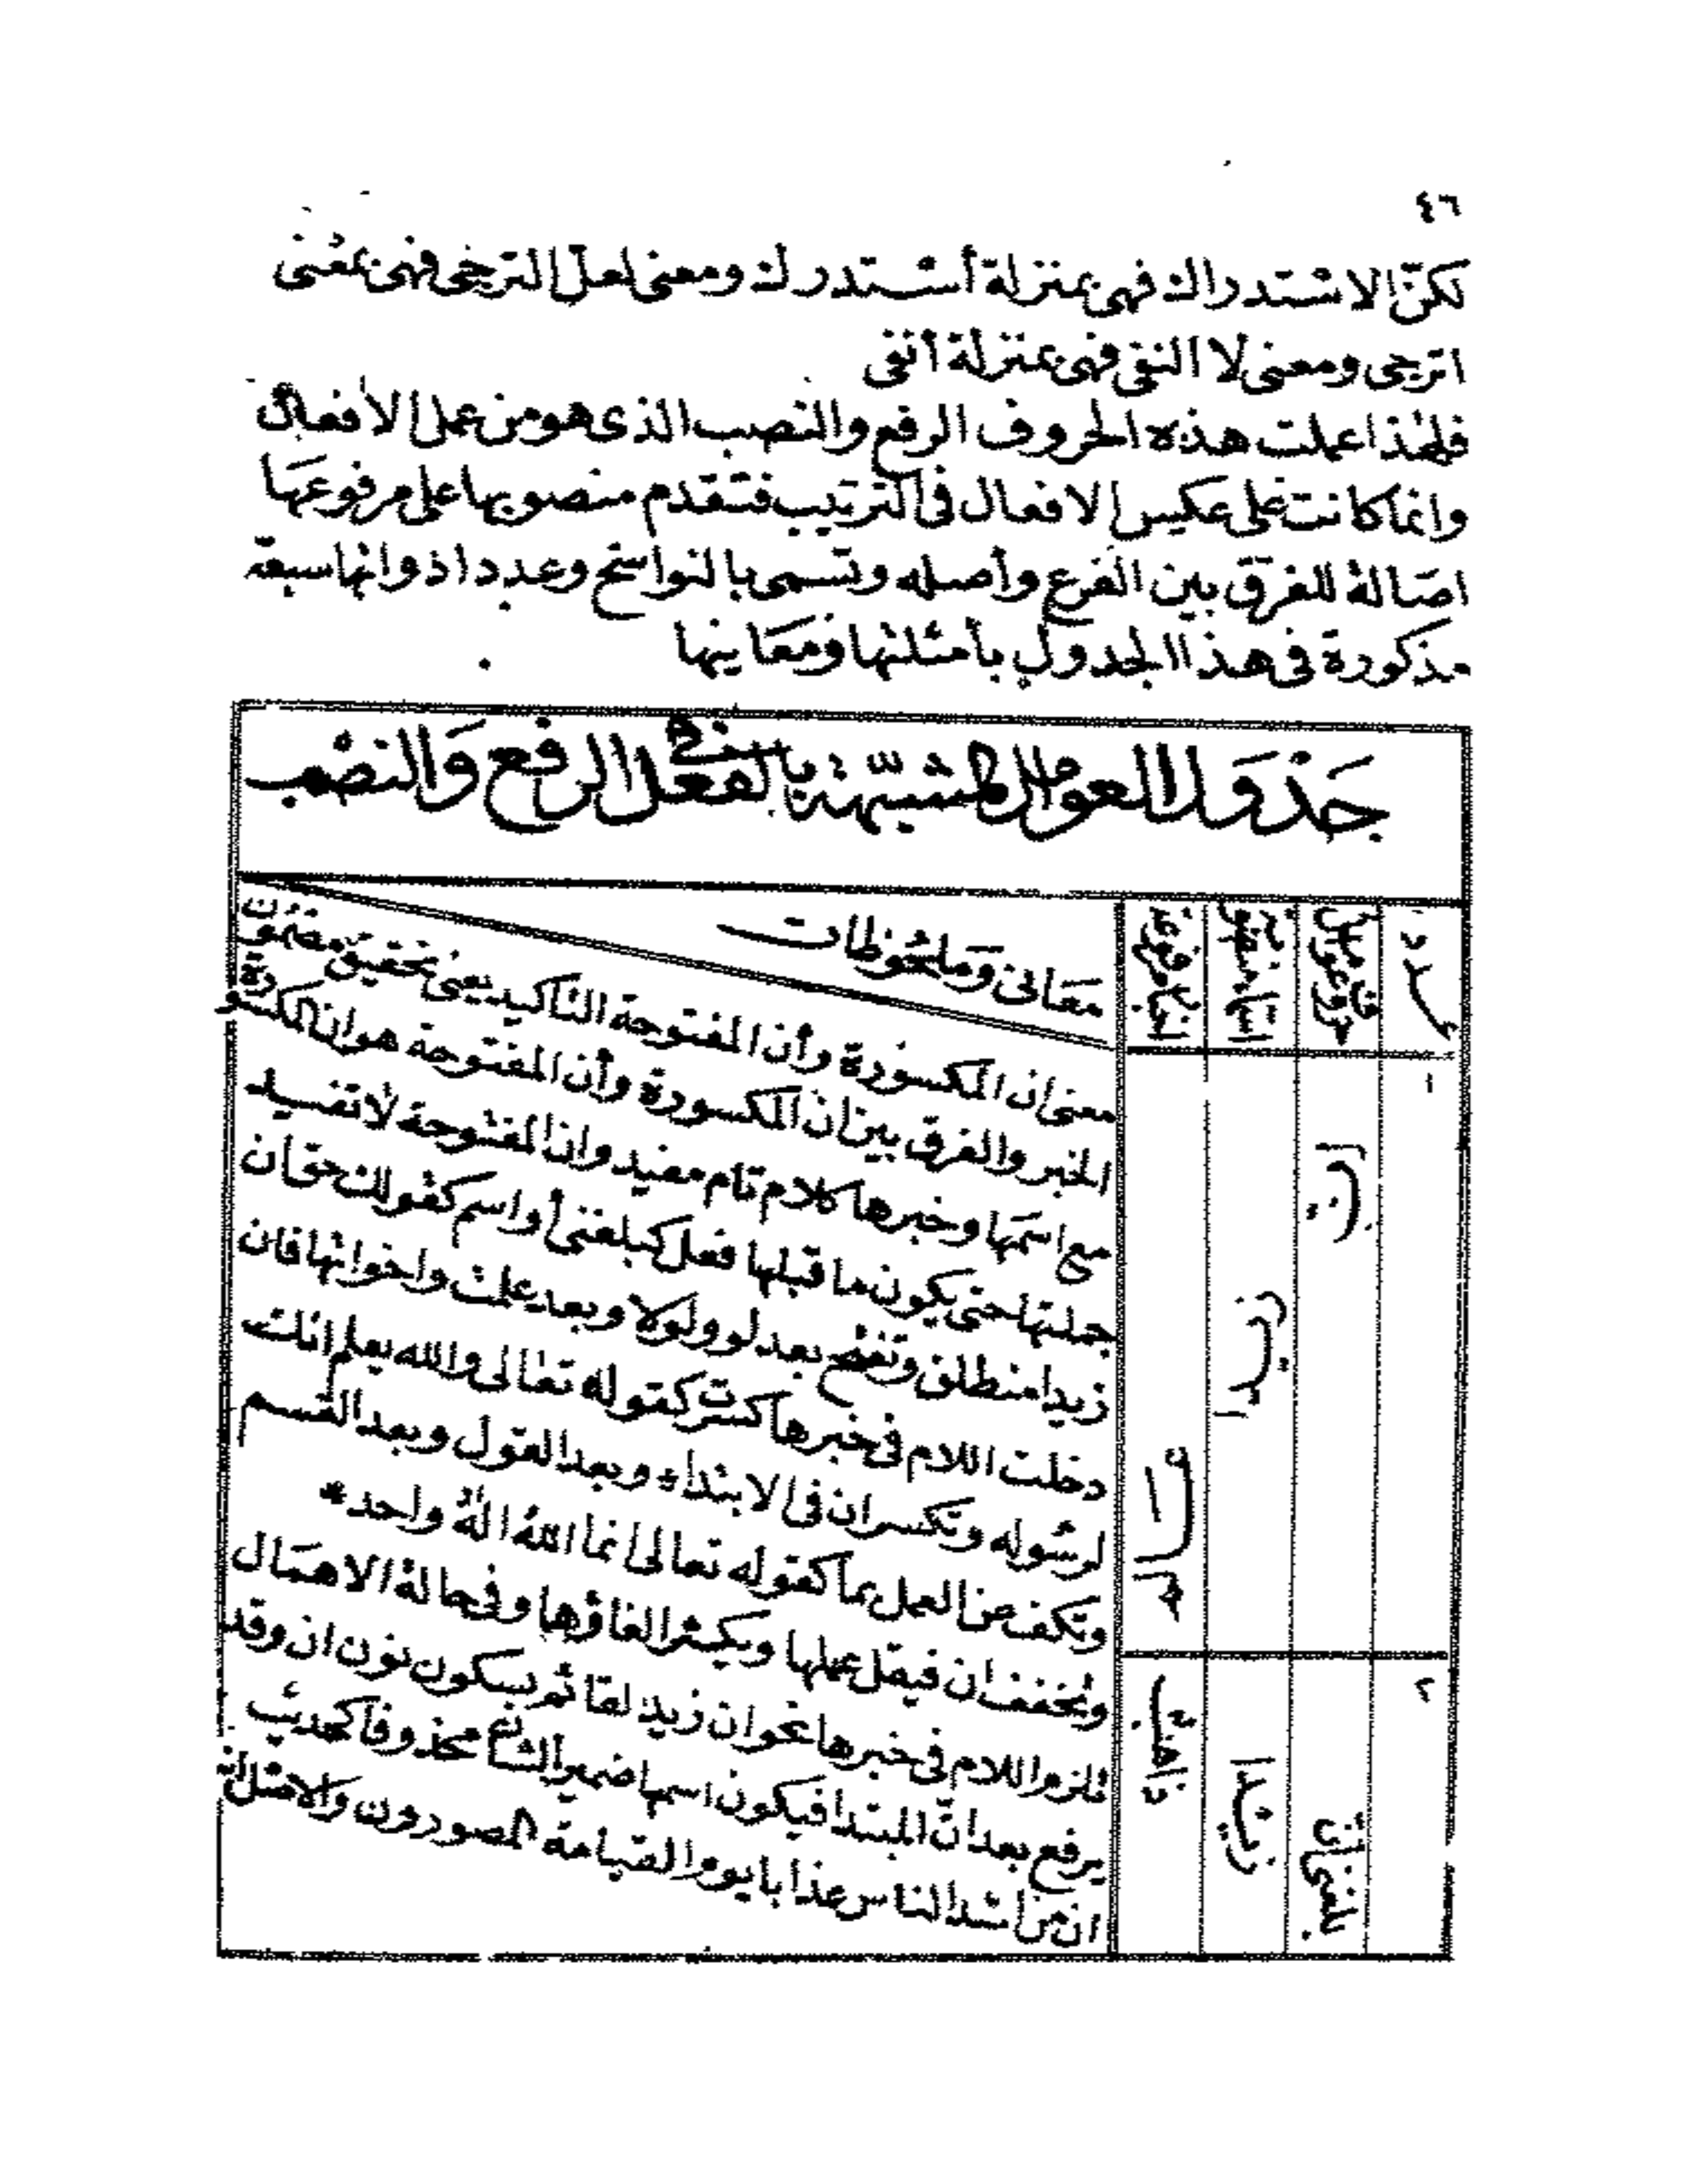 ٤٦
لكنّ الاستدراك فهى بمنزلة أستدرك ومعنى لعلّ الترجى فهى بمعنى
اترجى ومعنى لا النفى فهى بمنزلة أنفى
فلهذا عملت هذه الحروف الرفع والنصب الذى هو من عمل الأفعال
وانما كانت على عكس الافعال فى الترتيب فتقدم منصوبها على مرفوعها
اصالة للفرق بين الفرع وأصله وتسمى بالنواسخ وعدد اذواتها سبعة
مذكورة فى هذا الجدول بأمثلتها ومعانيها
جَدْوَل العوامل المشبّهة بالفعل فى الرفع وَالنصْب
عدد
اخبار مرفوعة
معَانى وَملحُوظات
١
إنّ
زيدًا
معنى ان المكسورة وأن المفتوحة التأكيد يعنى تحقيق مضمون
الخبر والفرق بين ان المكسورة وأن المفتوحة هو ان المكسورة
مع اسمها وخبرها كلام تام مفيد وان المفتوحة لا تفيد
جملتها حتى يكون ما قبلها فعل كبلغنى أو اسم كقولك حق ان
زيدا منطلق وتفتح بعد لو ولولا وبعد علمت واخواتها فان
دخلت اللام فى خبرها كسرت كقوله تعالى والله يعلم انك
لرسوله وتكسر ان فى الابتداء وبعد القول وبعد القسم
وتكف عن العمل بما كقوله تعالى انما اللهُ الهٌ واحد *
وتخفف ان فيقل عملها ويكثر الغاؤها وفى حالة الاهمال
تلزم اللام فى خبرها نحو ان زيدٌ لقائم بسكون نون ان وقد
يرفع بعد انّ المبتدا فيكون اسمها ضمير الشان محذوفا كحديث
ان من اشد الناس عذابا يوم القيامة المصورون والاصل انه
٢
بلغنى أن
زيدًا
ذاهبٌ